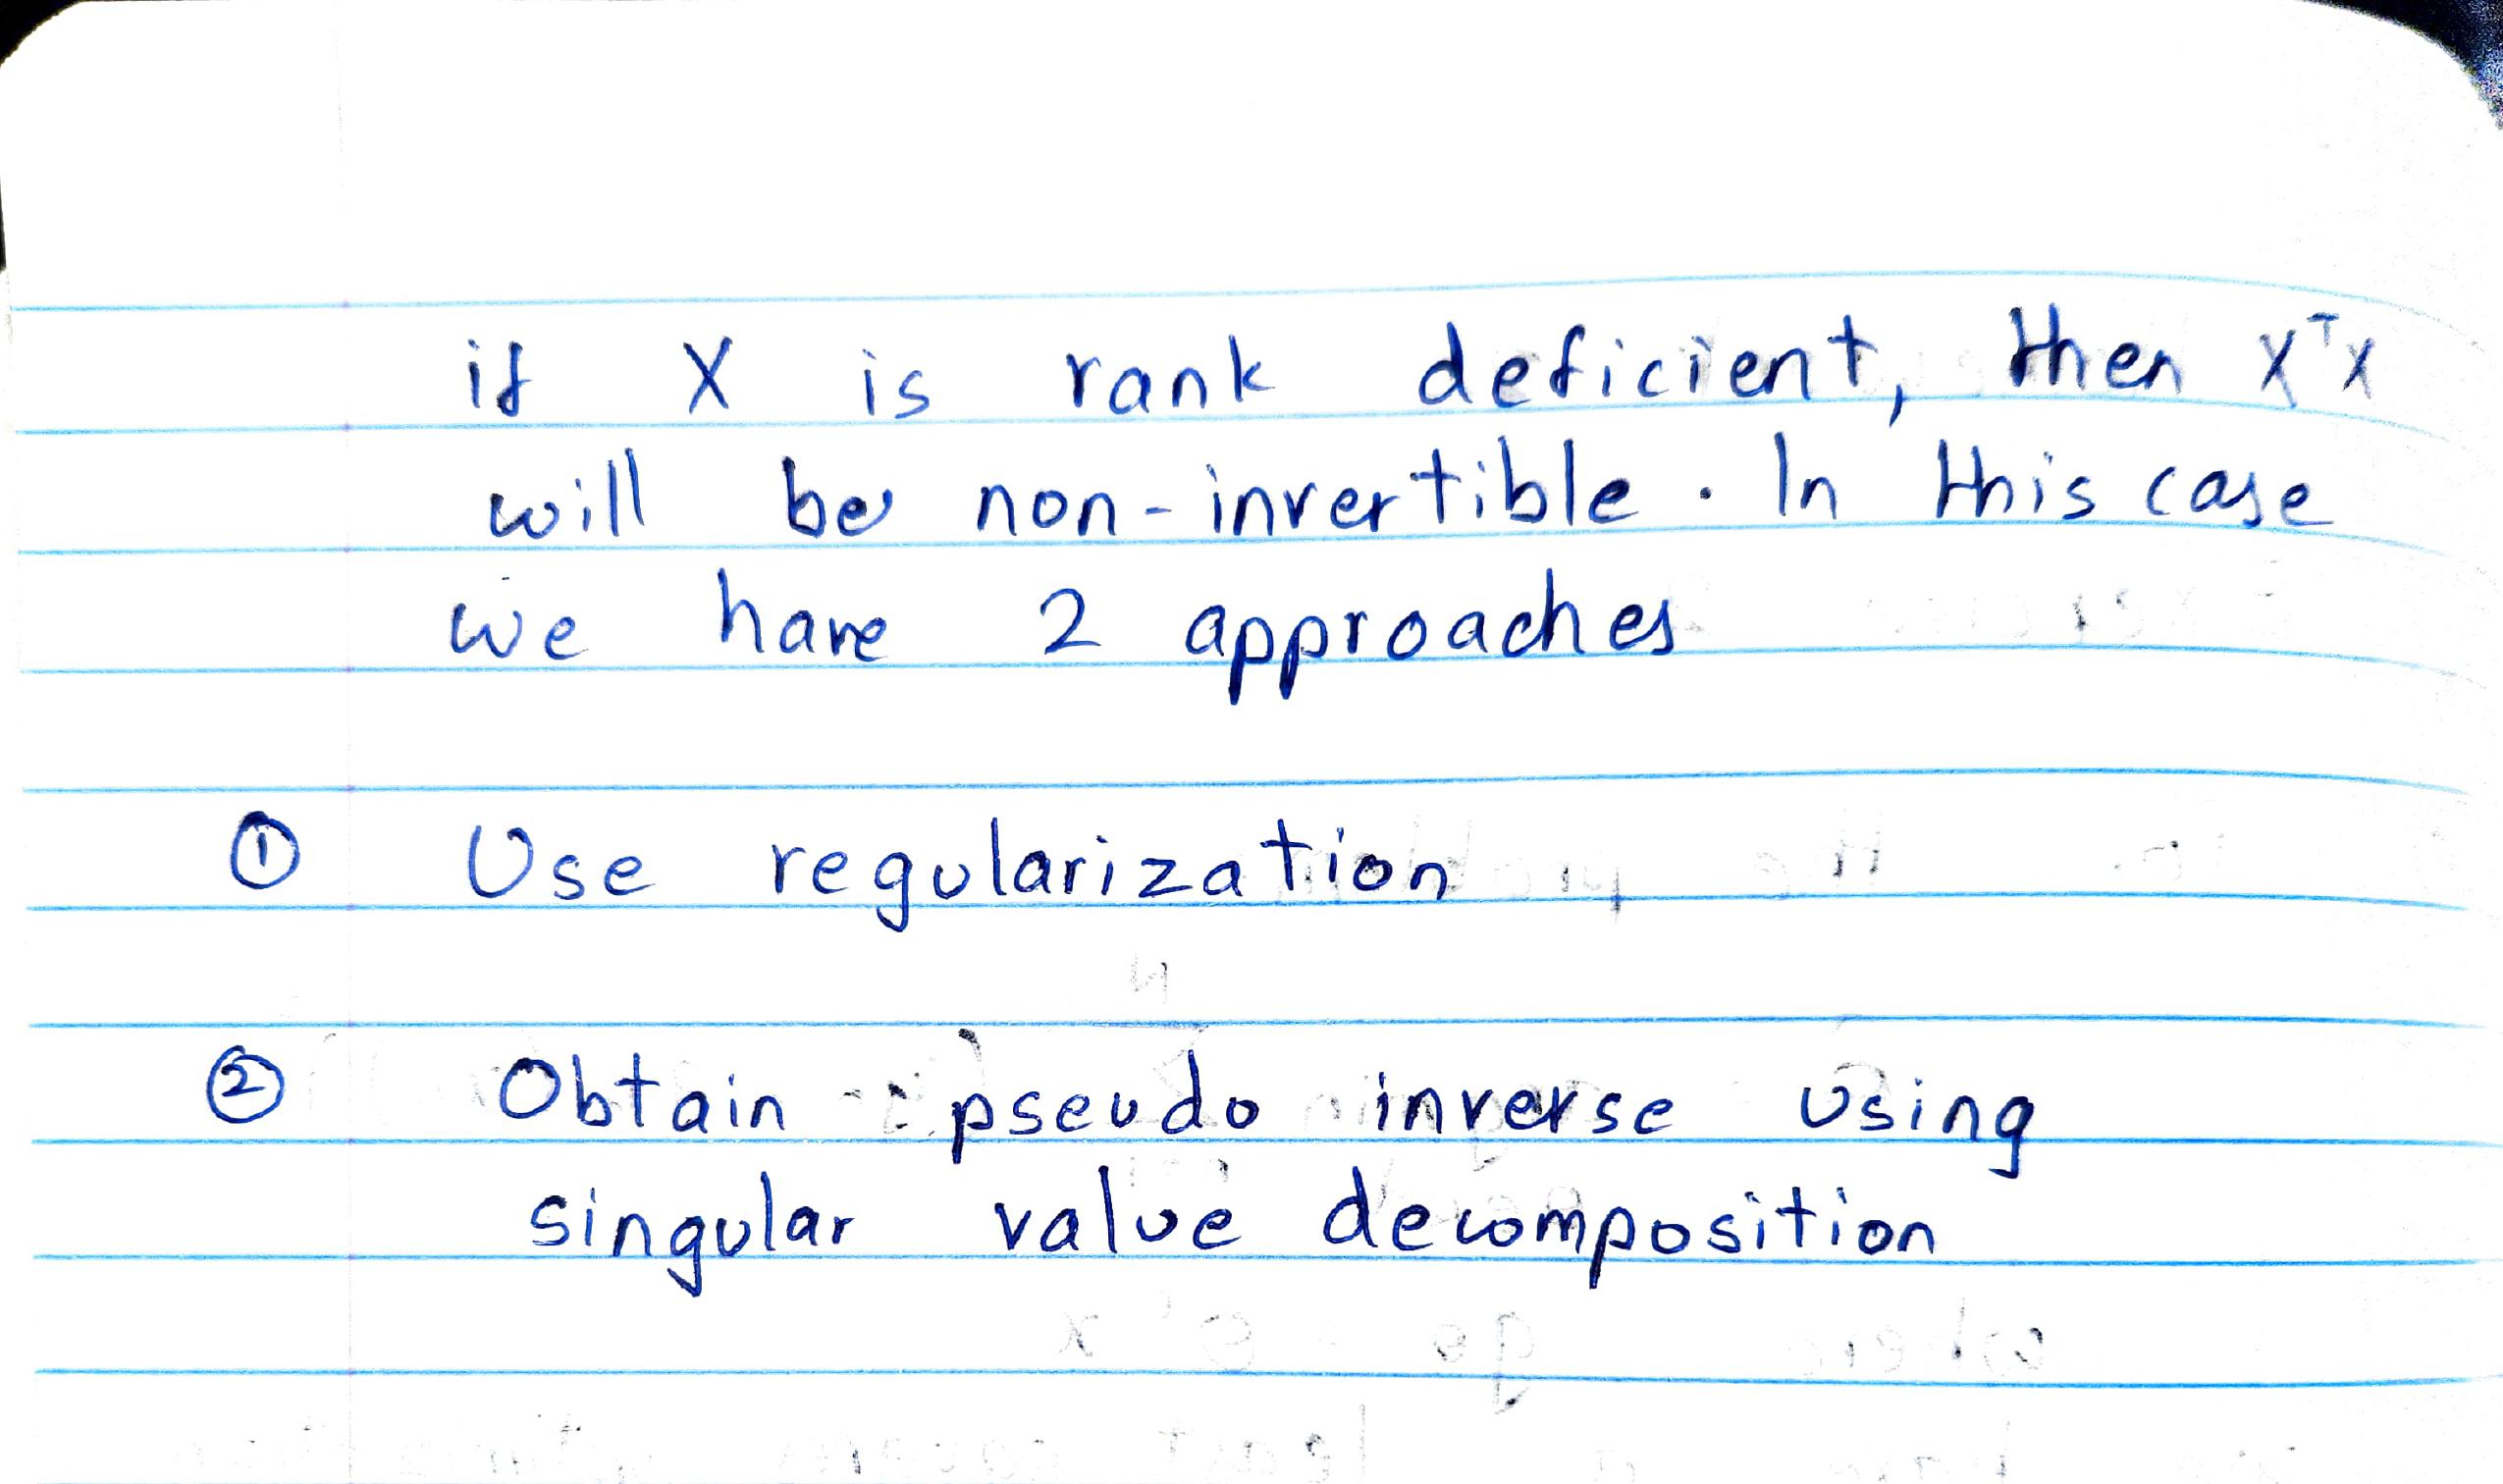 if X is rank deficient, then XᵀX
will be non-invertible. In this case
we have 2 approaches
① Use regularization
② Obtain pseudo inverse using
singular value decomposition